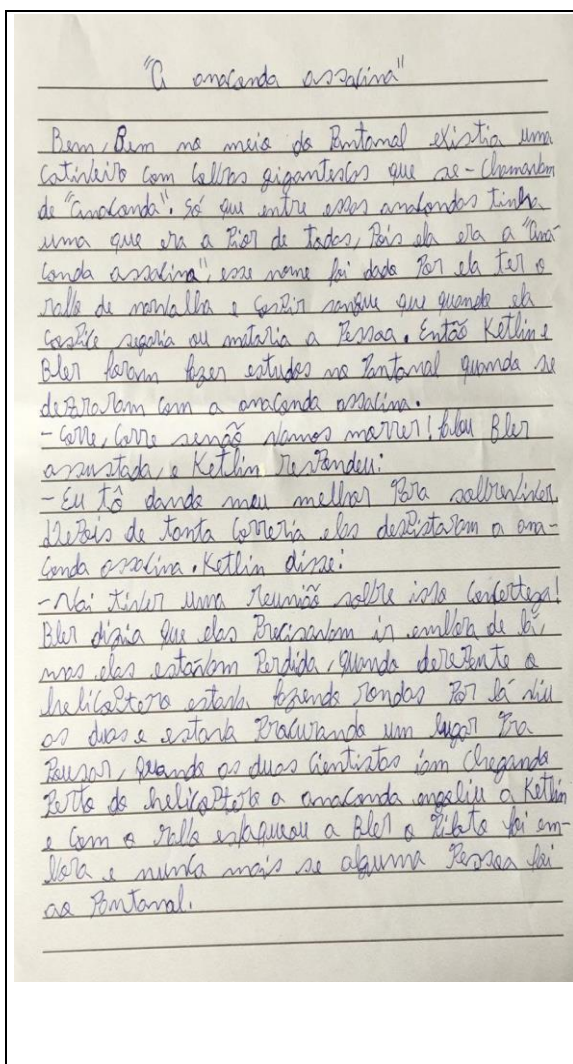 "A anaconda assacina"
Bem, Bem no meio do Pantanal existia uma
cativeiro com collras gigantescas que se-chamavam
de "anaconda". Só que entre essas anacondas tinha
uma que era a Pior de todas, Pois ela era a "ana
conda assacina", esse nome foi dado Por ela ter o
rallo de navalha e cospir sangue que quando ela
cospice segaria ou mataria a Pessoa. Então Ketlin e
Bler foram fazer estudos no Pantanal quando se
depararam com a anaconda assacina.
- Corre, Corre senão vamos morrer! falou Bler
assustada, e Ketlin respondeu:
- Eu tô dando meu melhor Para sollreviver.
Depois de tanta correria elas despistaram a ana-
conda assacina. Ketlin disse:
- Vai tivler uma reunião sollre isso concerteza!
Bler dizia que elas Precisavam ir emllora de lá,
mas elas estavam Perdida, quando derepente o
helicoptero estava fazendo rondas Por lá viu
as duas e estava Procurando um lugar Pra
Pousar, quando as duas cientistas iam chegando
Perto do helicoptero a anaconda engoliu a Ketlin
e com o rallo esfaqueou a Bler o Piloto foi em-
llora e nunca mais se alguma Pessoa foi
ao Pantanal.